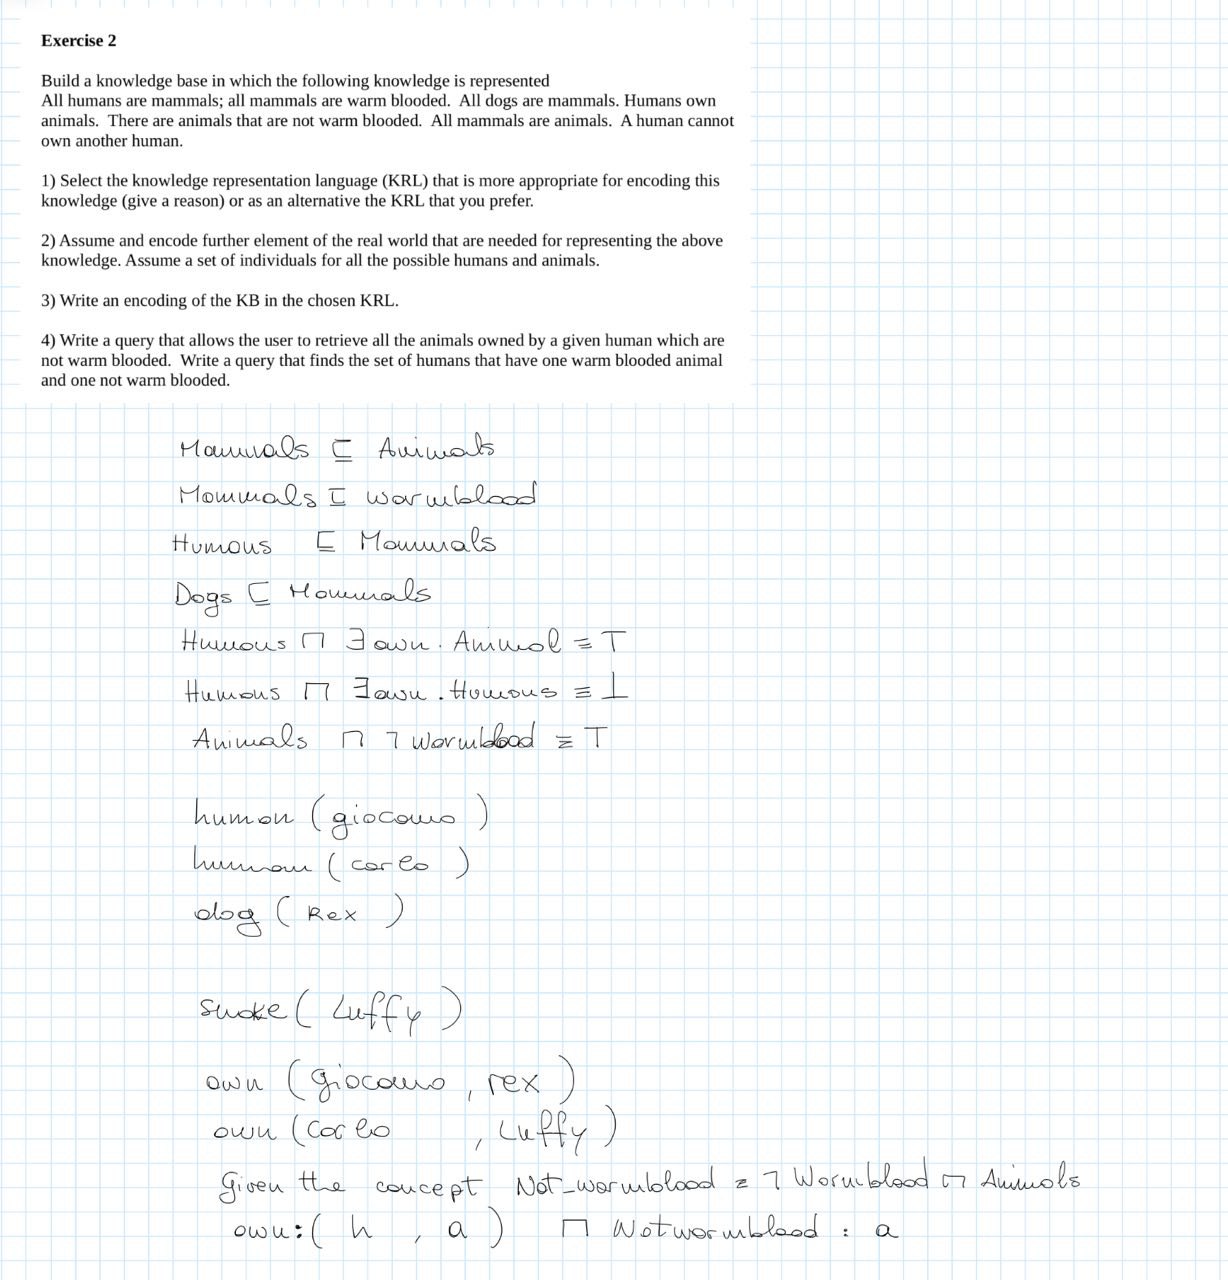 Exercise 2
Build a knowledge base in which the following knowledge is represented
All humans are mammals; all mammals are warm blooded. All dogs are mammals. Humans own
animals. There are animals that are not warm blooded. All mammals are animals. A human cannot
own another human.
1) Select the knowledge representation language (KRL) that is more appropriate for encoding this
knowledge (give a reason) or as an alternative the KRL that you prefer.
2) Assume and encode further element of the real world that are needed for representing the above
knowledge. Assume a set of individuals for all the possible humans and animals.
3) Write an encoding of the KB in the chosen KRL.
4) Write a query that allows the user to retrieve all the animals owned by a given human which are
not warm blooded. Write a query that finds the set of humans that have one warm blooded animal
and one not warm blooded.
Mammals ⊑ Animals
Mammals ⊑ warmblood
Humans ⊑ Mammals
Dogs ⊑ Mammals
Humans ⊓ ∃own.Animal ≡ ⊤
Humans ⊓ ∃own.Humans ≡ ⊥
Animals ⊓ ¬warmblood ≡ ⊤
human (giacomo)
human (carlo)
dog (Rex)
snake (Luffy)
own (giacomo, rex)
own (carlo, Luffy)
Given the concept Not_warmblood ≡ ¬Warmblood ⊓ Animals
own:(h, a) ⊓ Notwarmblood : a